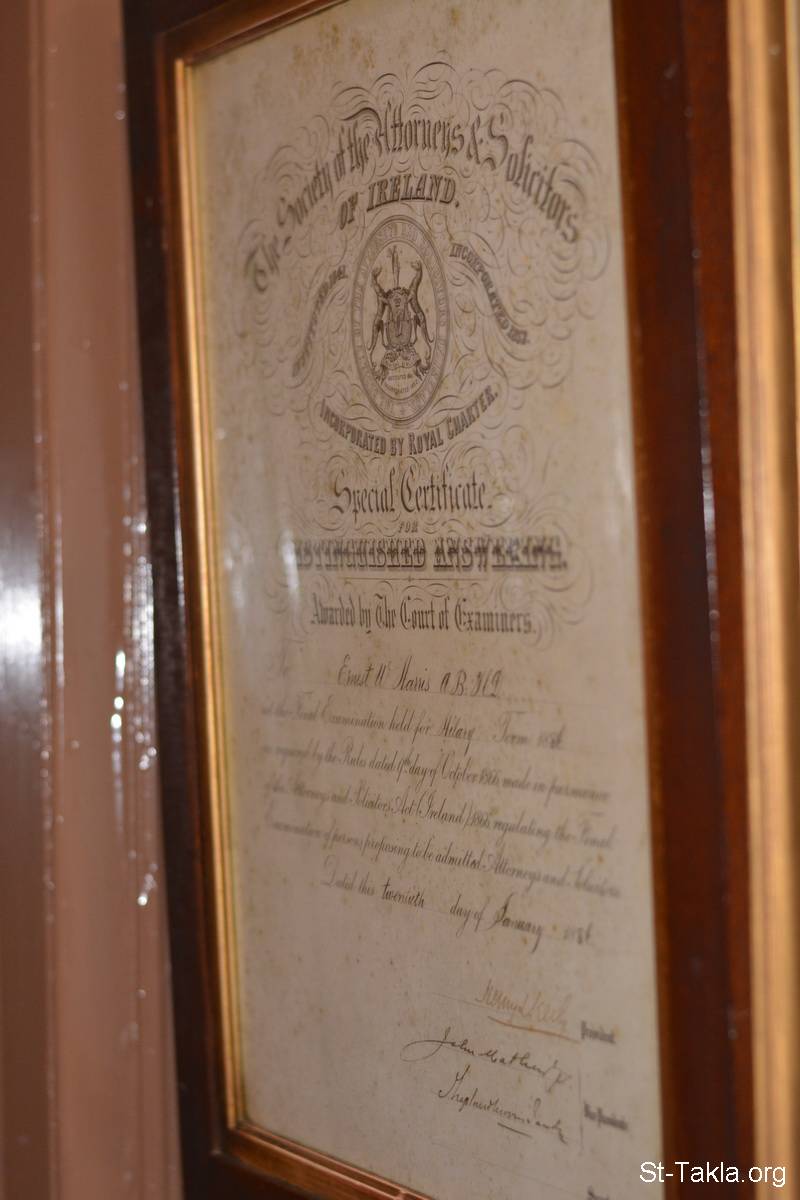 The Society of the Attorneys & Solicitors
OF IRELAND.
INCORPORATED
INCORPORATED BY ROYAL CHARTER.
Special Certificate
FOR
DISTINGUISHED ANSWERING.
Awarded by The Court of Examiners.
To Ernest W. Harris A.B.
at the Final Examination held for Hilary Term
as required by the Rules dated day of October 1866, made in pursuance
of the Attorneys and Solicitors Act (Ireland) 1866, regulating the Final
Examination of persons proposing to be admitted Attorneys and Solicitors
Dated this twentieth day of January
President
John
Vice Presidents
St-Takla.org